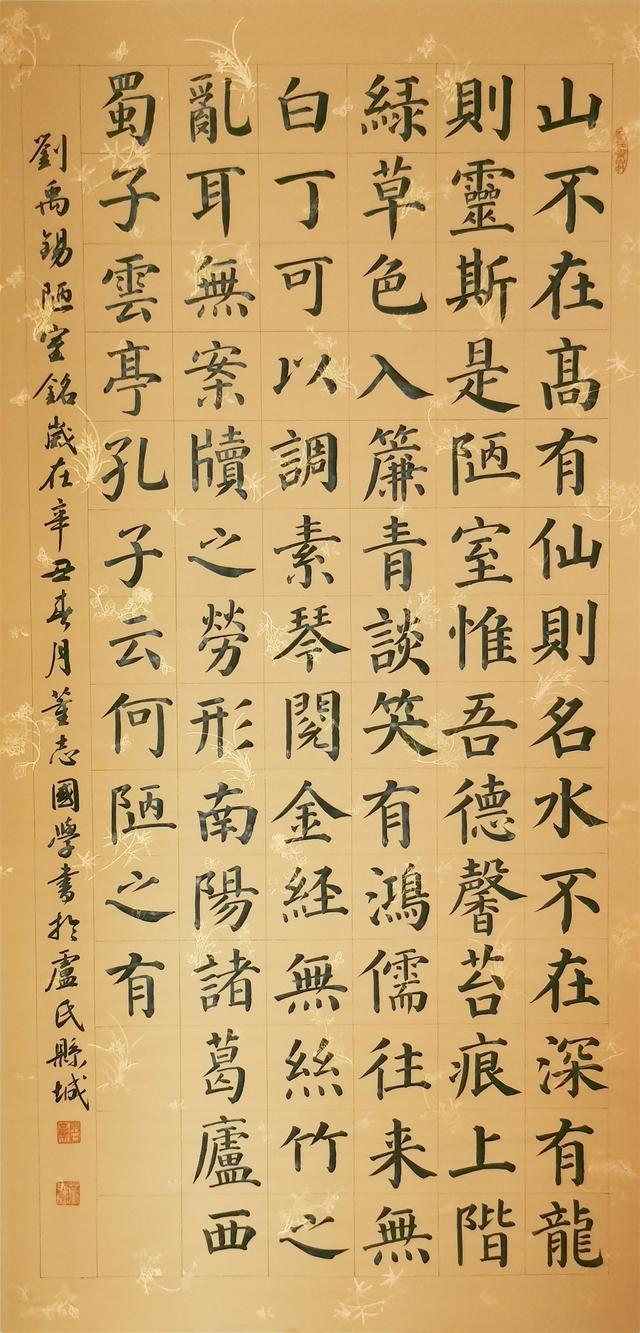 山不在高有仙則名水不在深有龍
則靈斯是陋室惟吾德馨苔痕上階
綠草色入簾青談笑有鴻儒往来無
白丁可以調素琴閱金経無絲竹之
亂耳無案牘之勞形南陽諸葛廬西
蜀子雲亭孔子云何陋之有
劉禹錫陋室銘歲在辛丑春月董志國學書於盧氏縣城